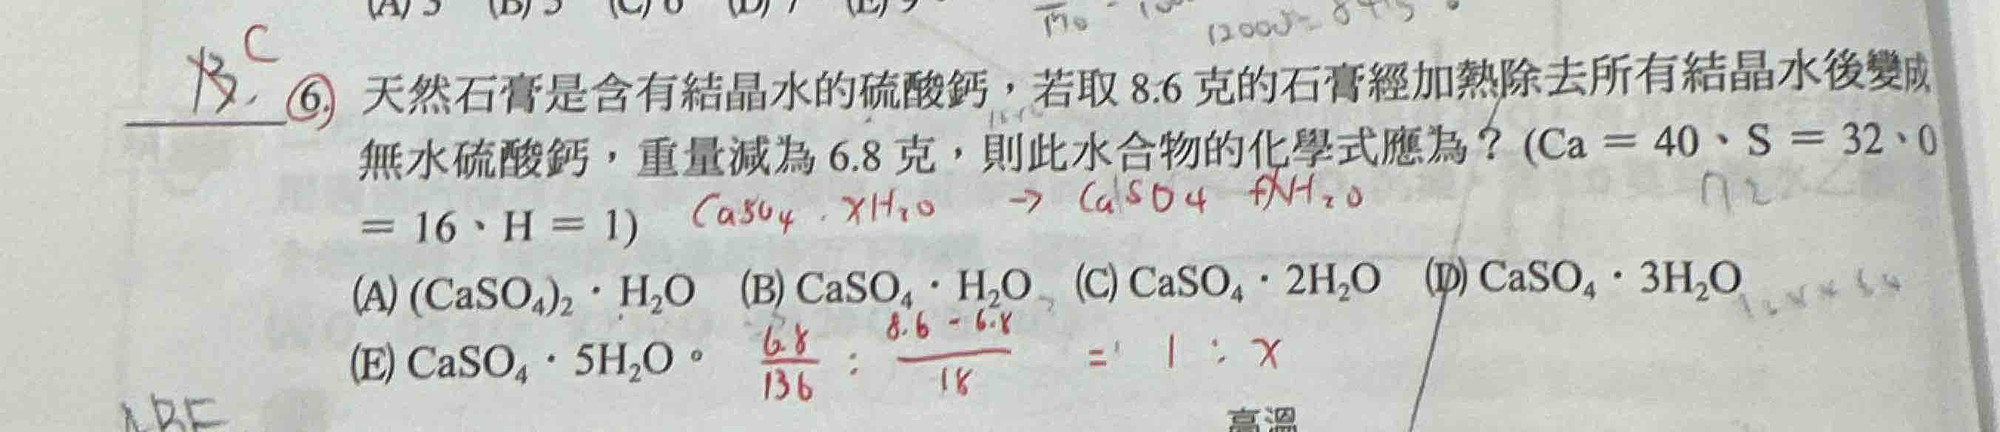 (A) 3 (B) 5 (C) 6 (D) 7 (E) 9
B. C
6. 天然石膏是含有結晶水的硫酸鈣，若取 8.6 克的石膏經加熱除去所有結晶水後變成
無水硫酸鈣，重量減為 6.8 克，則此水合物的化學式應為？(Ca = 40、S = 32、O
= 16、H = 1)
CaSO4 · xH2O → CaSO4 + xH2O
(A) (CaSO₄)₂．H₂O (B) CaSO₄．H₂O (C) CaSO₄．2H₂O (D) CaSO₄．3H₂O
(E) CaSO₄．5H₂O。
6.8/136 : 8.6 - 6.8/18 = 1 : x
ABE
高溫